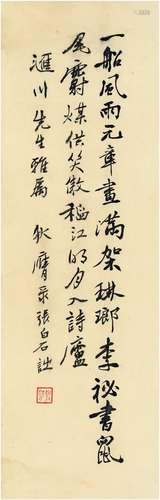 一船風雨元章畫滿架琳瑯李祕書鼠
尾麝煤供笑傲稻江明月入詩廬
滙川先生雅属
弟膺录張白石詩